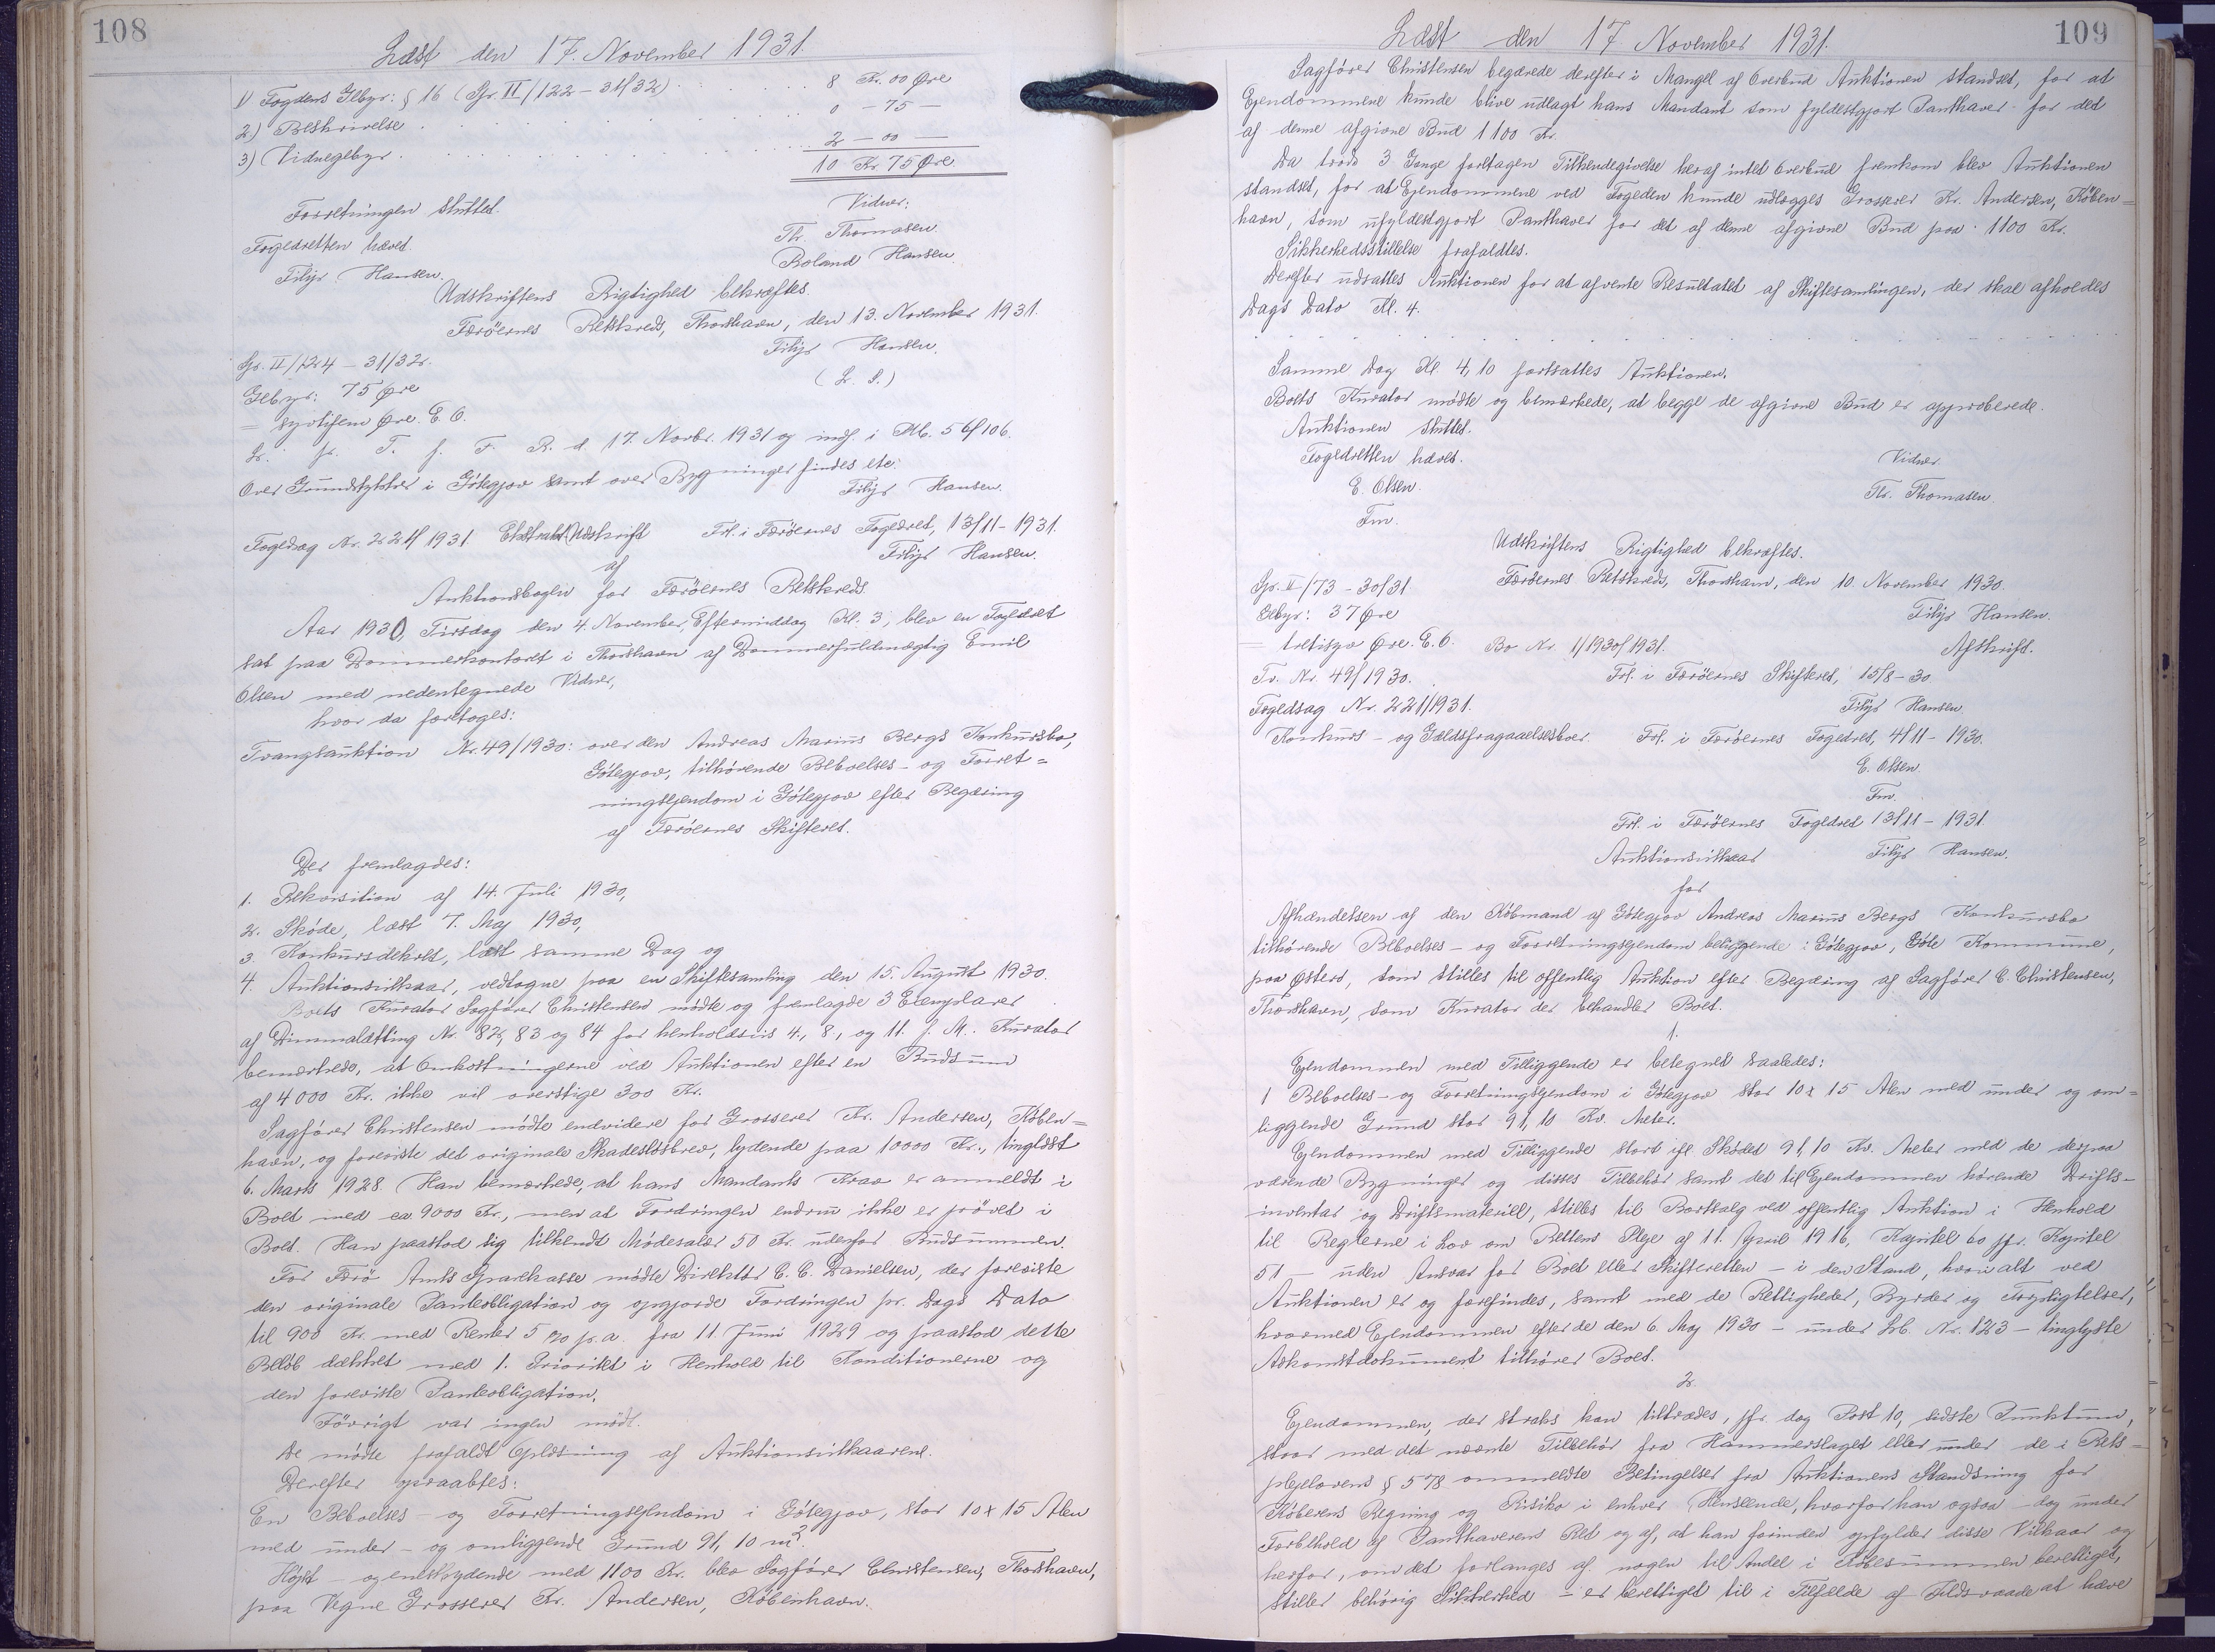 108
Læst den 17. November 1931.
1) Fogdens Gebyr: § 16 (Gr. II/122 - 31/32) . . . 8 Kr. 00 Øre
2) Beskrivelse . . . 0 - 75 -
3) Vidnegebyr . . . 2 - 00 -
10 Kr. 75 Øre
Forretningen sluttet.
Vidner:
Fogedretten hævet.
Th. Thomasen.
Filip Hansen.
Roland Hansen.
Udskriftens Rigtighed bekræftes.
Færöernes Retskreds, Thorshavn, den 13. November 1931.
Filip Hansen.
(L. S.)
Gr. II/124 - 31/32.
Gebyr: 75 Øre
= syvtifem Øre. E. O.
L. pr. T. f. F. R. d. 17. Novbr. 1931 og indf. i Mb. 56/106.
Over Grundstykker i Götegjov samt over Bygninger findes etc.
Filip Hansen.
Fogedsag Nr. 221/1931. Ekstrakt Udskrift Frl. i Færöernes Fogedret, 13/11 - 1931.
Filip Hansen.
af
Auktionsbogen for Færöernes Retskreds.
Aar 1930, Tirsdag den 4. November, Eftermiddag Kl. 3, blev en Fogedret
sat paa Dommerkontoret i Thorshavn af Dommerfuldmægtig Emil
Olsen med nedentegnede Vidner,
hvor da foretoges:
Tvangsauktion Nr. 49/1930: over den Andreas Marius Bergs Konkursbo,
Götegjov, tilhørende Beboelses- og Forret=
ningsejendom i Götegjov efter Begæring
af Færöernes Skifteret.
Der fremlagdes:
1. Rekvisition af 14. Juli 1930,
2. Skøde, læst 7. Maj 1930,
3. Konkursdekret, læst samme Dag og
4. Auktionsvilkaar, vedtagne paa en Skiftesamling den 15. August 1930.
Boets Kurator Sagfører Christensen mødte og fremlagde 3 Exemplarer
af Dimmalætting Nr. 82, 83 og 84 for henholdsvis 4., 8., og 11. f. M. Kurator
bemærkede, at Omkostningerne ved Auktionen efter en Budsum
af 4000 Kr. ikke vil overstige 300 Kr.
Sagfører Christensen mødte endvidere for Grosserer Kr. Andersen, Köben=
havn, og foreviste det originale Skadesløsbrev, lydende paa 10000 Kr., tinglæst
6. Marts 1928. Han bemærkede, at hans Mandants Krav er anmeldt i
Boet med ca. 9000 Kr., men at Fordringen endnu ikke er prövet i
Boet. Han paastod sig tilkendt Mødesalær 50 Kr. udenfor Budsummen.
For Færö Amts Sparekasse mødte Direktør C. C. Danielsen, der foreviste
den originale Panteobligation og opgjorde Fordringen pr. Dags Dato
til 900 Kr. med Renter 5 % p. a. fra 11. Juni 1929 og paastod dette
Beløb dækket med 1. Prioritet i Henhold til Konditionerne og
den foreviste Panteobligation.
Iövrigt var ingen mødt.
De mødte frafaldt Oplæsning af Auktionsvilkaarene.
Derefter opraabtes:
En Beboelses- og Forretningsejendom i Götegjov, stor 10 x 15 Alen
med under- og omliggende Grund 91,10 m².
Højst- og enestbydende med 1100 Kr. blev Sagfører Christensen, Thorshavn,
paa Vegne Grosserer Kr. Andersen, København.
109
Læst den 17 November 1931.
Sagfører Christensen begærede derefter i Mangel af Overbud Auktionen standset, for at
Ejendommene kunde blive udlagt hans Mandant som fyldestgjort Panthaver for det
af denne afgivne Bud 1100 Kr.
Da trods 3 Gange foretagen Tilkendegivelse heraf intet Overbud fremkom blev Auktionen
standset, for at Ejendommene ved Fogeden kunde udlægges Grosserer Kr. Andersen, Köben=
havn, som ufyldestgjort Panthaver for det af denne afgivne Bud paa 1100 Kr.
Sikkerhedsstillelse frafaldtes.
Derefter udsattes Auktionen for at afvente Resultatet af Skiftesamlingen, der skal afholdes
Dags Dato Kl. 4.
Samme Dag Kl. 4,10 fortsattes Auktionen.
Boets Kurator mødte og bemærkede, at begge de afgivne Bud er approberede.
Auktionen sluttet.
Fogedretten hævet.
Vidner
E. Olsen.
Th. Thomasen.
Fm.
Udskriftens Rigtighed bekræftes.
Gr. II/73 - 30/31.
Færöernes Retskreds, Thorshavn, den 10. November 1930.
Gebyr: 37 Øre
Filip Hansen.
= tretisyv Øre. E. O. Bo Nr. 1/1930/1931.
Afskrift.
Tv. Nr. 49/1930.
Frl. i Færöernes Skifteret, 15/8 - 30
Fogedsag Nr. 221/1931.
Filip Hansen
Konkurs- og Gældsfragaaelsesboer. Frl. i Færöernes Fogedret, 4/11 - 1930.
E. Olsen.
Fm.
Frl. i Færöernes Fogedret 13/11 - 1931.
Auktionsvilkaar
Filip Hansen.
for
Afhændelsen af den Købmand af Götegjov Andreas Marius Bergs Konkursbo
tilhørende Beboelses- og Forretningsejendom beliggende i Götegjov, Göte Kommune,
paa Østerö, som stilles til offentlig Auktion efter Begæring af Sagfører C. Christensen,
Thorshavn, som Kurator der behandler Boet.
1.
Ejendommen med Tilliggende er betegnet saaledes:
1 Beboelses- og Forretningsejendom i Götegjov stor 10 x 15 Alen med under og om=
liggende Grund stor 91,10 Kv. Meter.
Ejendommen med Tilliggende stort ifl. Skødet 91,10 Kv. Meter med de derpaa
værende Bygninger og disses Tilbehør samt det til Ejendommen hørende Drifts-
inventar og Driftsmateriel, stilles til Bortsalg ved offentlig Auktion i Henhold
til Reglerne i Lov om Rettens Pleje af 11. April 1916, Kapitel 60 jfr. Kapitel
51 - uden Ansvar for Boet eller Skifteretten - i den Stand, hvori alt ved
Auktionen er og forefindes, samt med de Rettigheder, Byrder og Forpligtelser,
hvormed Ejendommen efter de den 6. Maj 1930 - under Lb. Nr. 123 - tinglyste
Adkomstdokument tilhører Boet.
2.
Ejendommen, der straks kan tiltrædes, jfr. dog Post 10, sidste Punktum,
staar med det nævnte Tilbehør fra Hammerslaget eller under de i Rets=
plejelovens § 578 ommeldte Betingelser fra Auktionens Standsning for
Køberens Regning og Risiko i enhver Henseende, hvorfor han ogsaa - dog under
Forbehold af Panthaverens Ret og af, at han forinden opfylder disse Vilkaar og
herfor, om det forlanges af nogen til Andel i Købesummen berettiget,
stiller behørig Sikkerhed - er berettiget til i Tilfælde af Ildsvaade at hæve